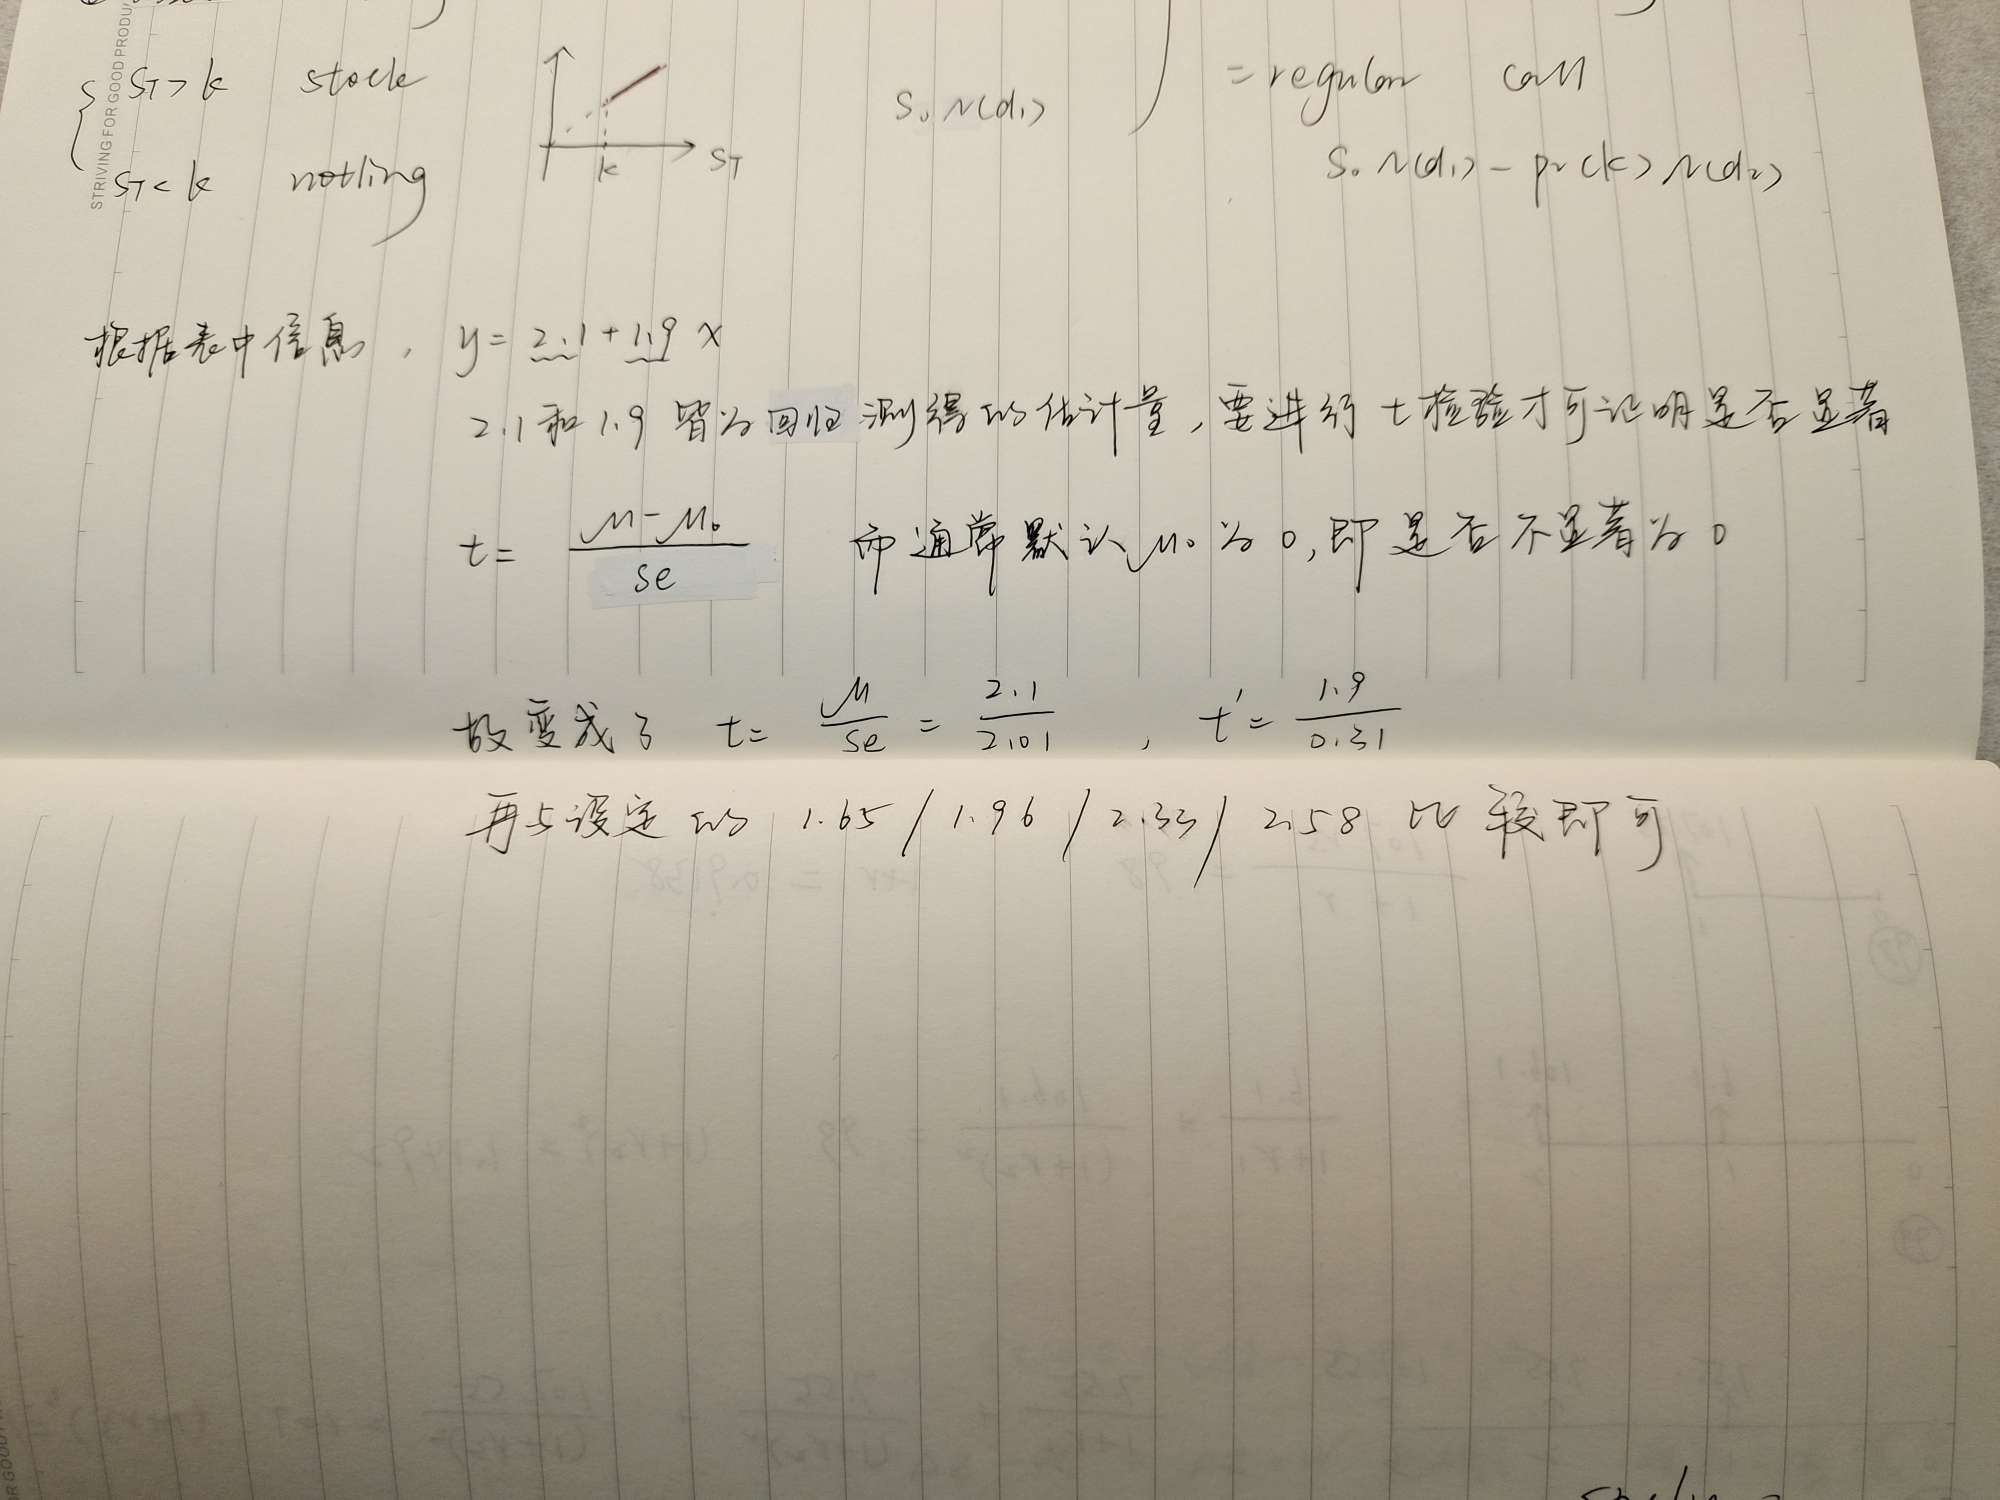 STRIVING FOR GOOD PRODU
ST > k stock
ST < k notling
k ST
S₀ N(d₁)
= regular call
S₀ N(d₁) - pv(k) N(d₂)
根据表中信息, y = 2.1 + 1.9 x
2.1和1.9 皆为回归测得的估计量, 要进行 t检验才可证明是否显著
t = (μ - μ₀) / se 而通常默认 μ₀ 为 0, 即是否不显著为 0
故变成了 t = μ / se = 2.1 / 2.01 , t' = 1.9 / 0.31
再与设定的 1.65 / 1.96 / 2.33 / 2.58 比较即可